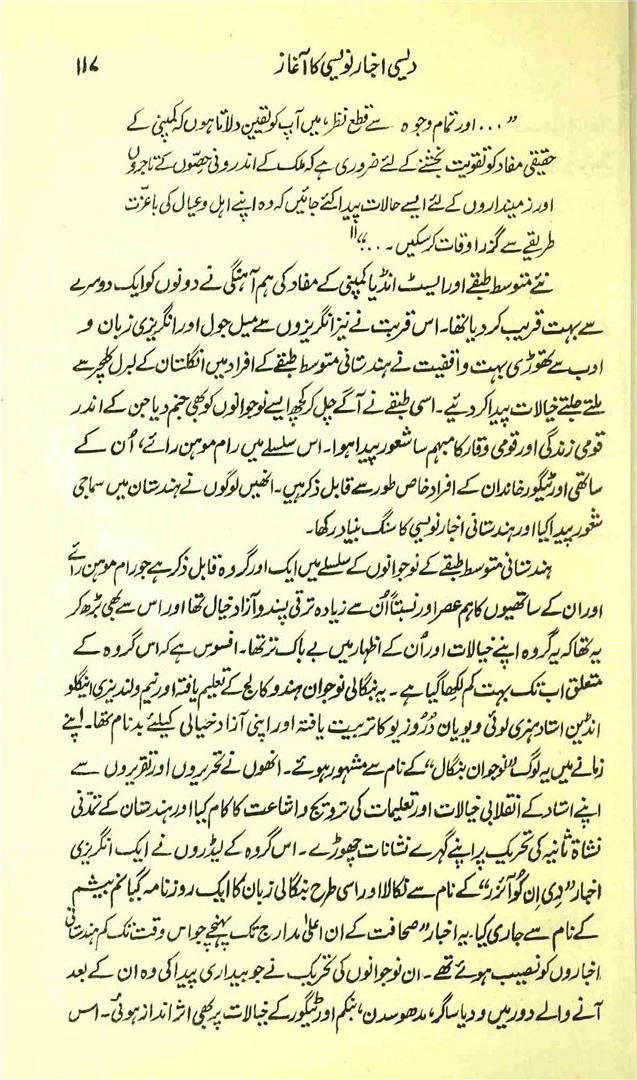 دیسی اخبار نویسی کا آغاز ۱۱۷
”... اور تمام وجوہ سے قطع نظر، میں آپ کو یقین دلاتا ہوں کہ کمپنی کے
حقیقی مفاد کو تقویت بخشنے کے لئے ضروری ہے کہ ملک کے اندرونی حصّوں کے تاجروں
اور زمینداروں کے لئے ایسے حالات پیدا کئے جائیں کہ وہ اپنے اہل و عیال کی باعزّت
طریقے سے گزر اوقات کر سکیں۔...“۱۱
نئے متوسط طبقے اور ایسٹ انڈیا کمپنی کے مفاد کی ہم آہنگی نے دونوں کو ایک دوسرے
سے بہت قریب کر دیا تھا۔ اس قربت نے نیز انگریزوں سے میل جول اور انگریزی زبان و
ادب سے تھوڑی بہت واقفیت نے ہندستانی متوسط طبقے کے افراد میں انگلستان کے لبرل کلچر سے
ملتے جلتے خیالات پیدا کر دیئے۔ اسی طبقے نے آگے چل کر کچھ ایسے نوجوانوں کو بھی جنم دیا جن کے اندر
قومی زندگی اور قومی وقار کا مبہم سا شعور پیدا ہوا۔ اس سلسلے میں رام موہن رائے، اُن کے
ساتھی اور ٹیگور خاندان کے افراد خاص طور سے قابل ذکر ہیں۔ انھیں لوگوں نے ہندستان میں سماجی
شعور پیدا کیا اور ہندستانی اخبار نویسی کا سنگ بنیاد رکھا۔
ہندستانی متوسط طبقے کے نوجوانوں کے سلسلے میں ایک اور گروہ قابل ذکر ہے جو رام موہن رائے
اور ان کے ساتھیوں کا ہم عصر اور نسبتاً اُن سے زیادہ ترقی پسند و آزاد خیال تھا اور اس سے بھی بڑھ کر
یہ تھا کہ یہ گروہ اپنے خیالات اور اُن کے اظہار میں بے باک تر تھا۔ افسوس ہے کہ اس گروہ کے
متعلق اب تک بہت کم لکھا گیا ہے۔ یہ بنگالی نوجوان ہندو کالج کے تعلیم یافتہ اور نیم ولندیزی اینگلو
انڈین استاد ہنری لوئی ویویان دُرُوزیو کا تربیت یافتہ اور اپنی آزاد خیالی کیلئے بدنام تھا۔ اپنے
زمانے میں یہ لوگ ”نوجوان بنگال“ کے نام سے مشہور ہوئے۔ انھوں نے تحریروں اور تقریروں سے
اپنے استاد کے انقلابی خیالات اور تعلیمات کی ترویج و اشاعت کا کام کیا اور ہندستان کے تمدّنی
نشاۃ ثانیہ کی تحریک پر اپنے گہرے نشانات چھوڑے۔ اس گروہ کے لیڈروں نے ایک انگریزی
اخبار ”دِی اِن کُوائرَر“ کے نام سے نکالا اور اسی طرح بنگالی زبان کا ایک روزنامہ گیانم بیشم
کے نام سے جاری کیا۔ یہ اخبار ”صحافت کے ان اعلیٰ مدارج تک پہنچے جو اس وقت تک کم ہندستانی
اخباروں کو نصیب ہوئے تھے۔ ان نوجوانوں کی تحریک نے جو بیداری پیدا کی وہ ان کے بعد
آنے والے دور میں ودیا ساگر، مدھوسدن، بنکم اور ٹیگور کے خیالات پر بھی اثر انداز ہوئی۔ اس